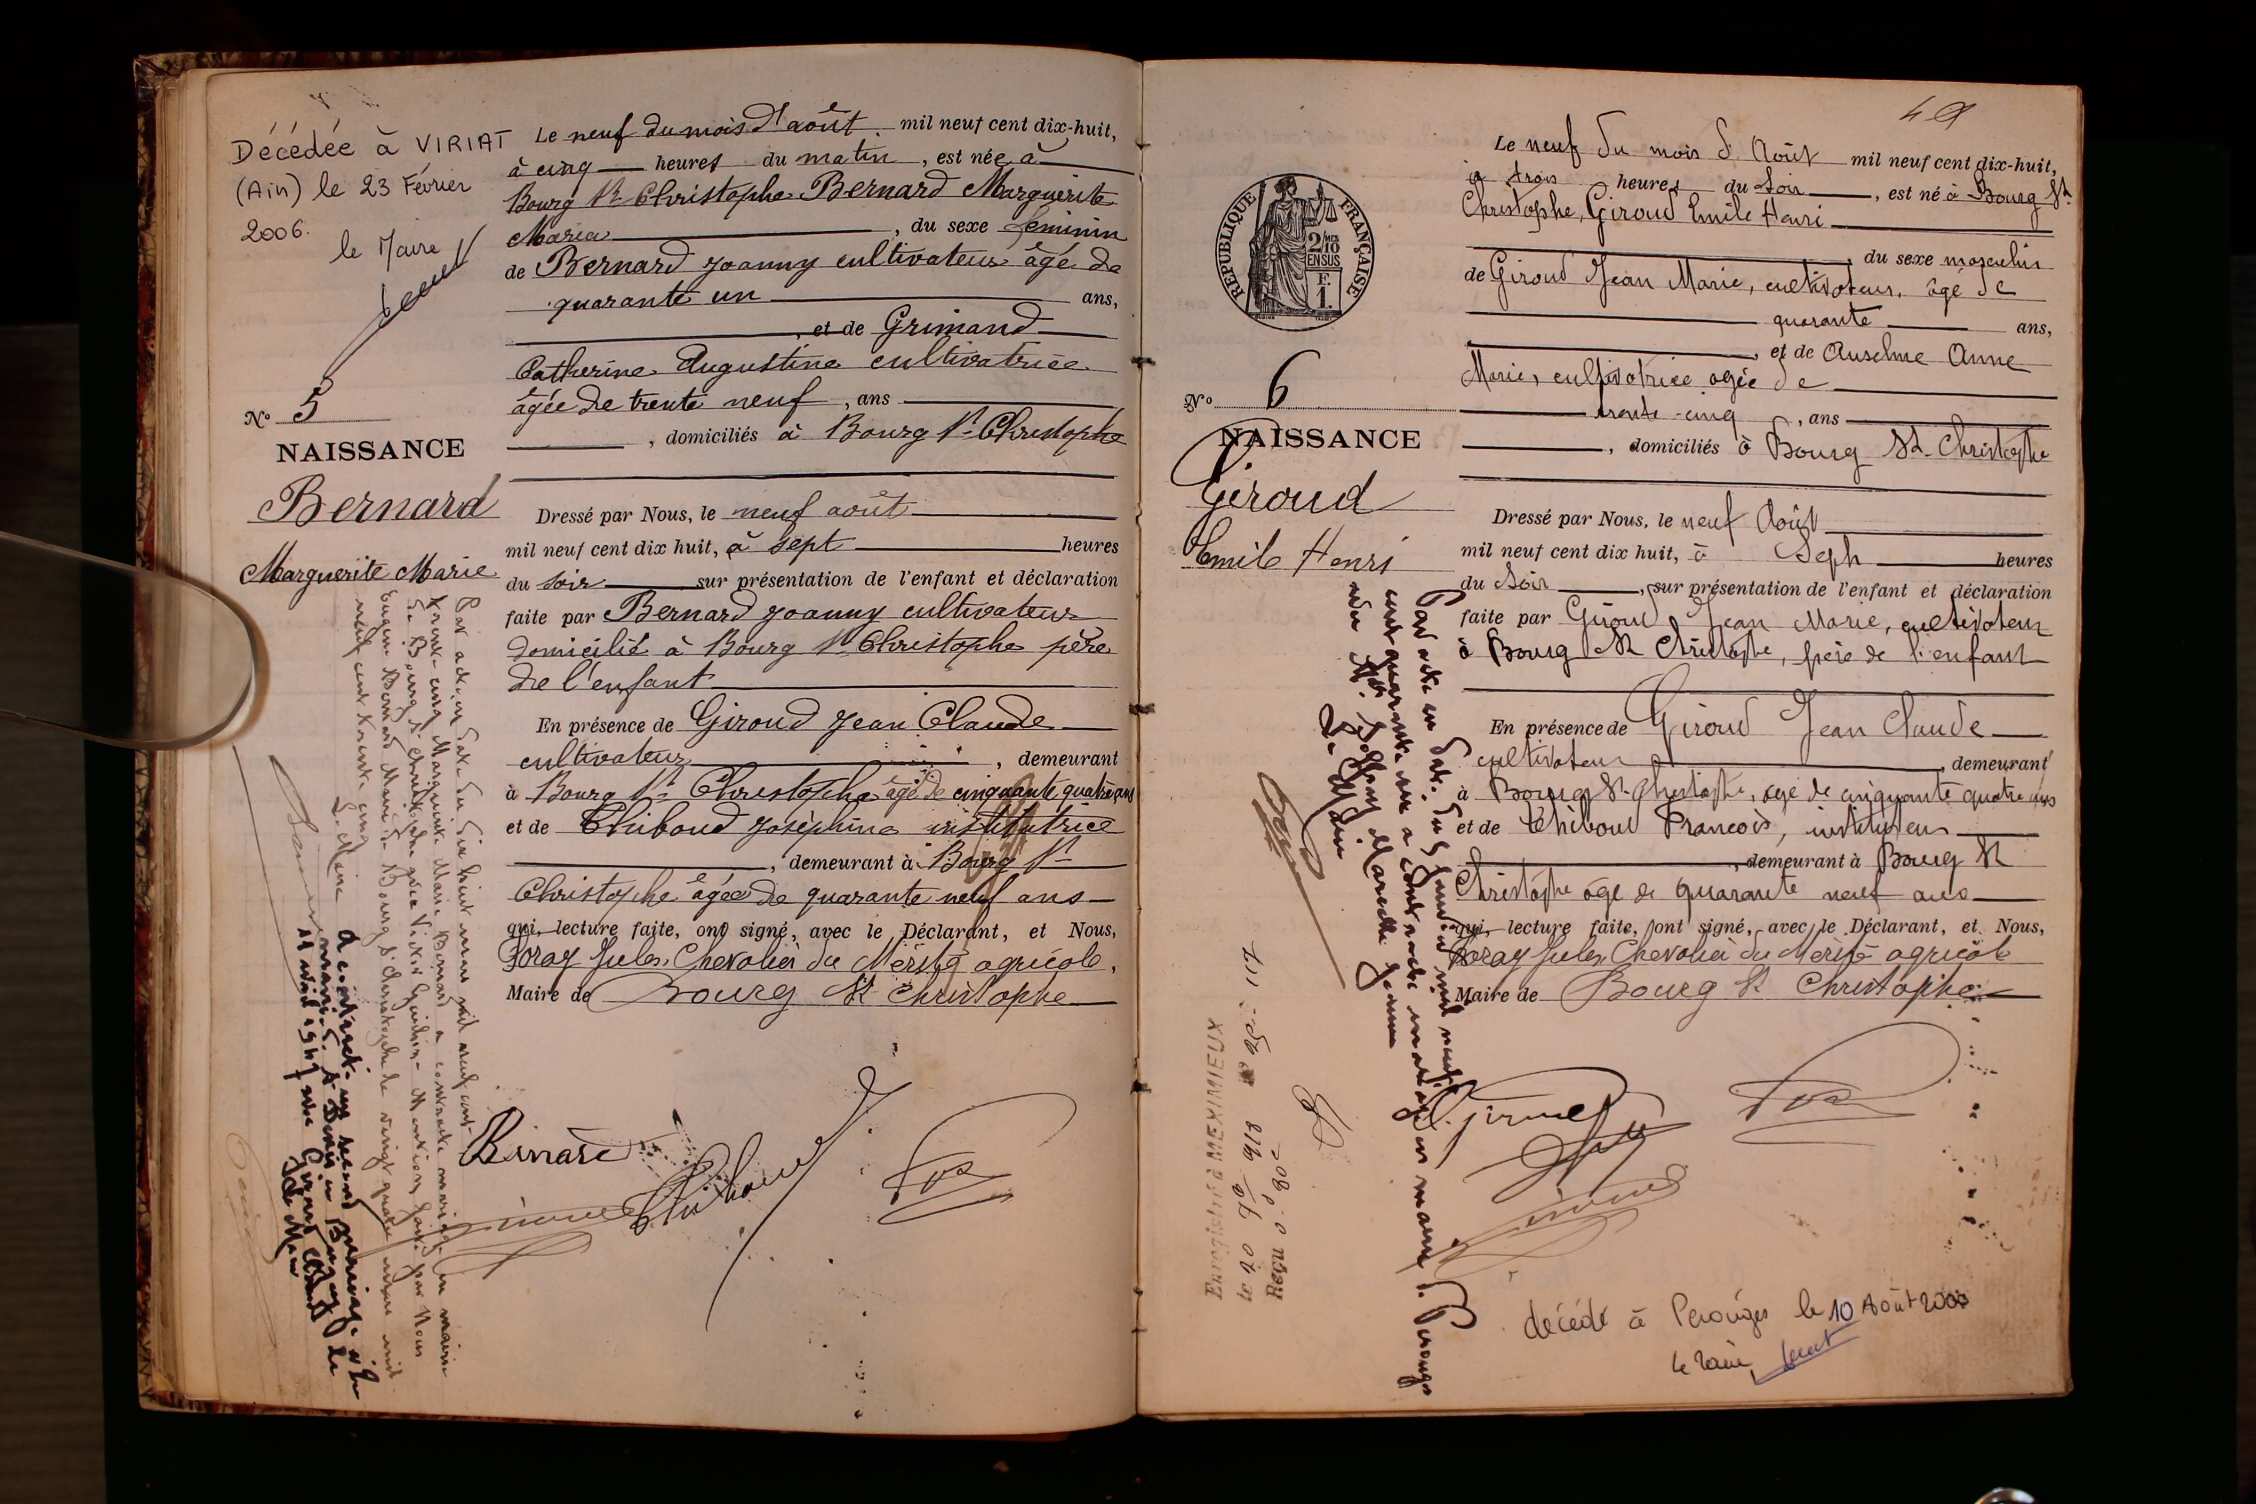 Décédée à VIRIAT
(Ain) le 23 Février
2006.
le Maire
N° 5
NAISSANCE
Bernard
Marguerite Marie
Le neuf du mois d'août mil neuf cent dix-huit,
à cinq heures du matin, est née à
Bourg St Christophe Bernard Marguerite
Maria, du sexe féminin
de Bernard Joanny cultivateur âgé de
quarante un ans,
, et de Grimand
Catherine Augustine cultivatrice
âgée de trente neuf, ans
, domiciliés à Bourg St Christophe
Dressé par Nous, le neuf août
mil neuf cent dix huit, à sept heures
du soir sur présentation de l'enfant et déclaration
faite par Bernard Joanny cultivateur
domicilié à Bourg St Christophe père
de l'enfant
En présence de Giroud Jean Claude
cultivateur, demeurant
à Bourg St Christophe âgé de cinquante quatre ans
et de Thiboud Joséphine institutrice
, demeurant à Bourg St
Christophe âgée de quarante neuf ans
qui, lecture faite, ont signé, avec le Déclarant, et Nous,
Foray Jules, Chevalier du Mérite agricole,
Maire de Bourg St Christophe
Par acte en date du dix huit mars mil neuf cent
trente-cinq Marguerite Marie Bernard a contracté mariage en mairie
de Bourg St Christophe avec Victor
Mention faite par Nous
Eugène Bernard Maire de Bourg St Christophe le vingt quatre mars mil
neuf cent trente cinq
Le Maire
A contracté un second mariage à
St Denis en Bugey le
11 avril 1947 avec
Le Maire
49
RÉPUBLIQUE FRANÇAISE
2/10 MES
EN SUS
F.
1.
N° 6
NAISSANCE
Giroud
Emile Henri
Le neuf du mois d'Août mil neuf cent dix-huit,
à trois heures du Soir, est né à Bourg St
Christophe, Giroud Emile Henri
, du sexe masculin
de Giroud Jean Marie, cultivateur, âgé de
quarante ans,
, et de Anselme Anne
Marie, cultivatrice agée de
trente-cinq, ans
, domiciliés à Bourg St Christophe
Dressé par Nous, le neuf Août
mil neuf cent dix huit, à Sept heures
du Soir, sur présentation de l'enfant et déclaration
faite par Giroud Jean Marie, cultivateur
à Bourg St Christophe, père de l'enfant
En présence de Giroud Jean Claude
cultivateur, demeurant
à Bourg St Christophe, âgé de cinquante quatre ans
et de Thiboud François, instituteur
, demeurant à Bourg St
Christophe âgé de quarante neuf ans
qui, lecture faite, ont signé, avec le Déclarant, et Nous,
Foray Jules, Chevalier du Mérite agricole
Maire de Bourg St Christophe
Par acte en date du 5 mil neuf
cent quarante un a contracté mariage en mairie de Perouges
avec Marcelle Jeanne
Le Maire
Enregistré à MEXIMIEUX
Reçu
décédé à Perouges le 10 Août 2000
le Maire